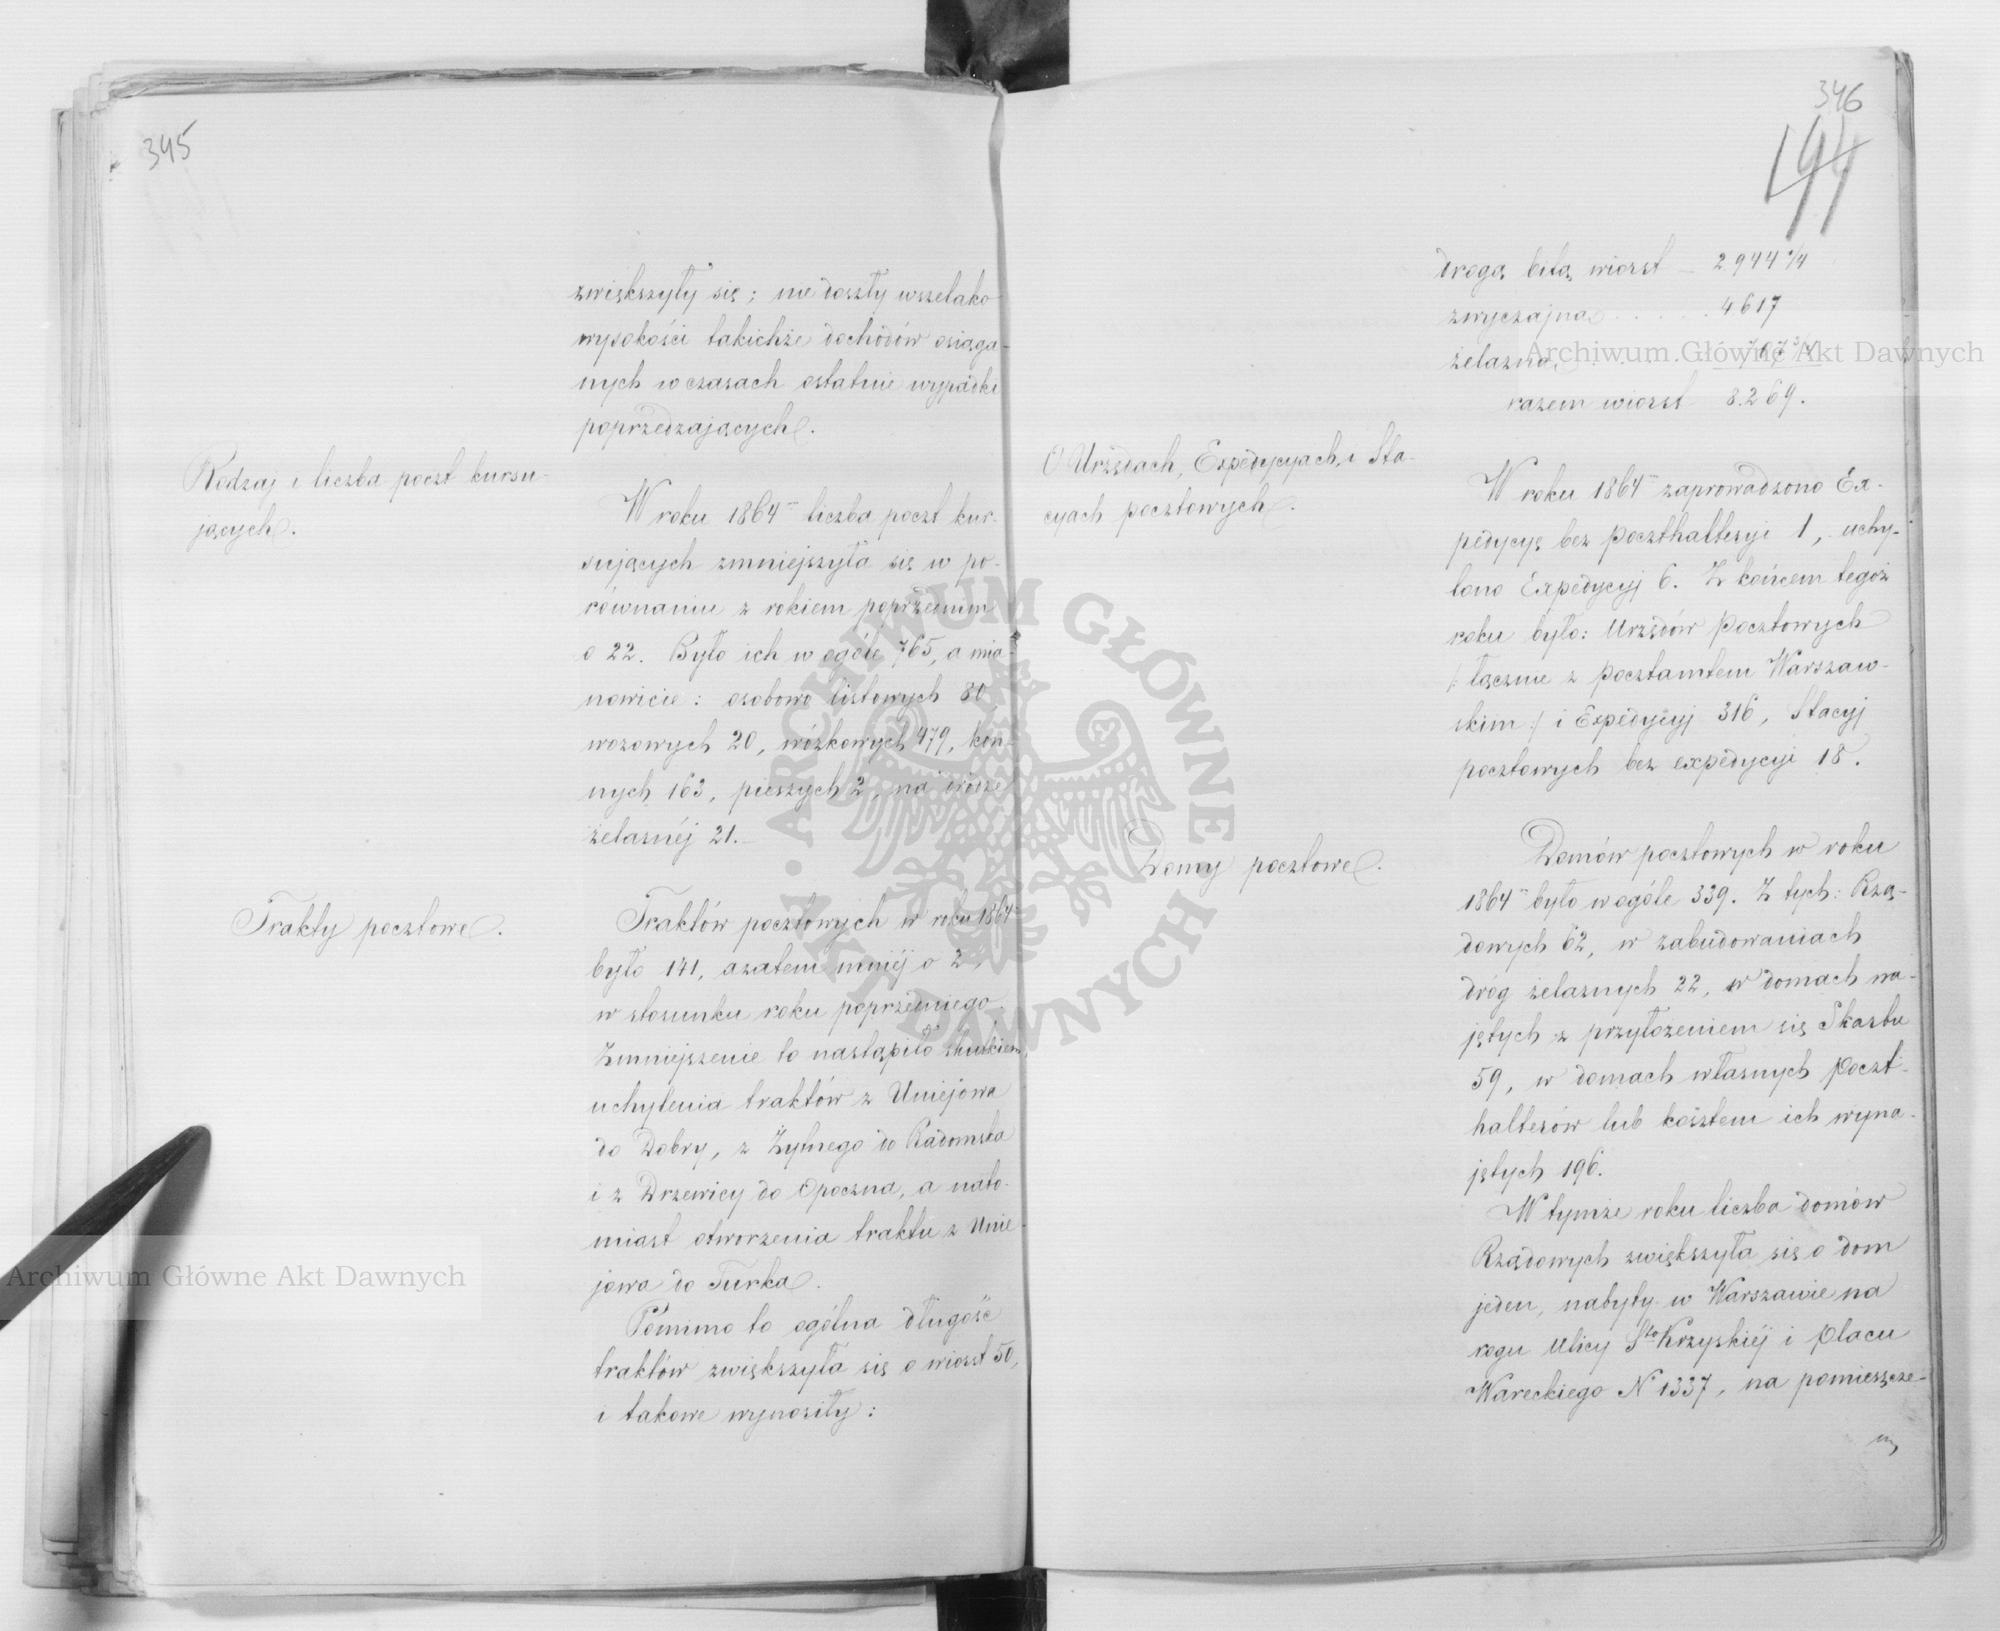 345
zwiększyły się; nie doszły wszelako
wysokości takichże dochodów osiąga-
nych w czasach ostatnie wypadki
poprzedzających.
Rodzaj i liczba poczt kursu-
jących.
W roku 1864 liczba poczt kur-
sujących zmniejszyła się w po-
równaniu z rokiem poprzednim
o 22. Było ich w ogóle 765, a mia-
nowicie: osobowo listowych 80,
wozowych 20, wózkowych 479, kon-
nych 163, pieszych 2, na drodze
żelaznéj 21.
Trakty pocztowe.
Traktów pocztowych w roku 1864
było 141, azatem mniéj o 2,
w stosunku roku poprzedniego.
Zmniejszenie to nastąpiło skutkiem
uchylenia traktów z Uniejowa
do Dobry, z Żytnego do Radomska
i z Drzewicy do Opoczna, a nato-
miast otworzenia traktu z Unie-
jowa do Turka.
Pomimo to ogólna długość
traktów zwiększyła się o wiorst 50,
i takowe wynosiły:
346
194
drogą bitą wiorst – 2944 1/4
zwyczajną . . . . . 4617
żelazną . . . . 707 3/4
razem wiorst 8.269.
O Urzędach, Expedycyach i Sta-
cyach pocztowych.
W roku 1864 zaprowadzono Ex-
pedycyę bez poczthalteryi 1, uchy-
lono Expedycyj 6. Z końcem tegoż
roku było: Urzędów pocztowych
/: łącznie z pocztamtem Warszaw-
skim :/ i Expedycyj 316, Stacyj
pocztowych bez expedycyi 18.
Domy pocztowe.
Domów pocztowych w roku
1864 było w ogóle 339. Z tych: Rzą-
dowych 62, w zabudowaniach
dróg żelaznych 22, w domach na-
jętych z przyłożeniem się Skarbu
59, w domach własnych poczt-
halterów lub kosztem ich wyna-
jętych 196.
W tymże roku liczba domów
Rządowych zwiększyła się o dom
jeden, nabyty w Warszawie na
rogu Ulicy Sto Krzyskiéj i placu
Wareckiego No 1337, na pomieszcze-
Archiwum Główne Akt Dawnych
Archiwum Główne Akt Dawnych
ARCHIWUM GŁÓWNE AKT DAWNYCH